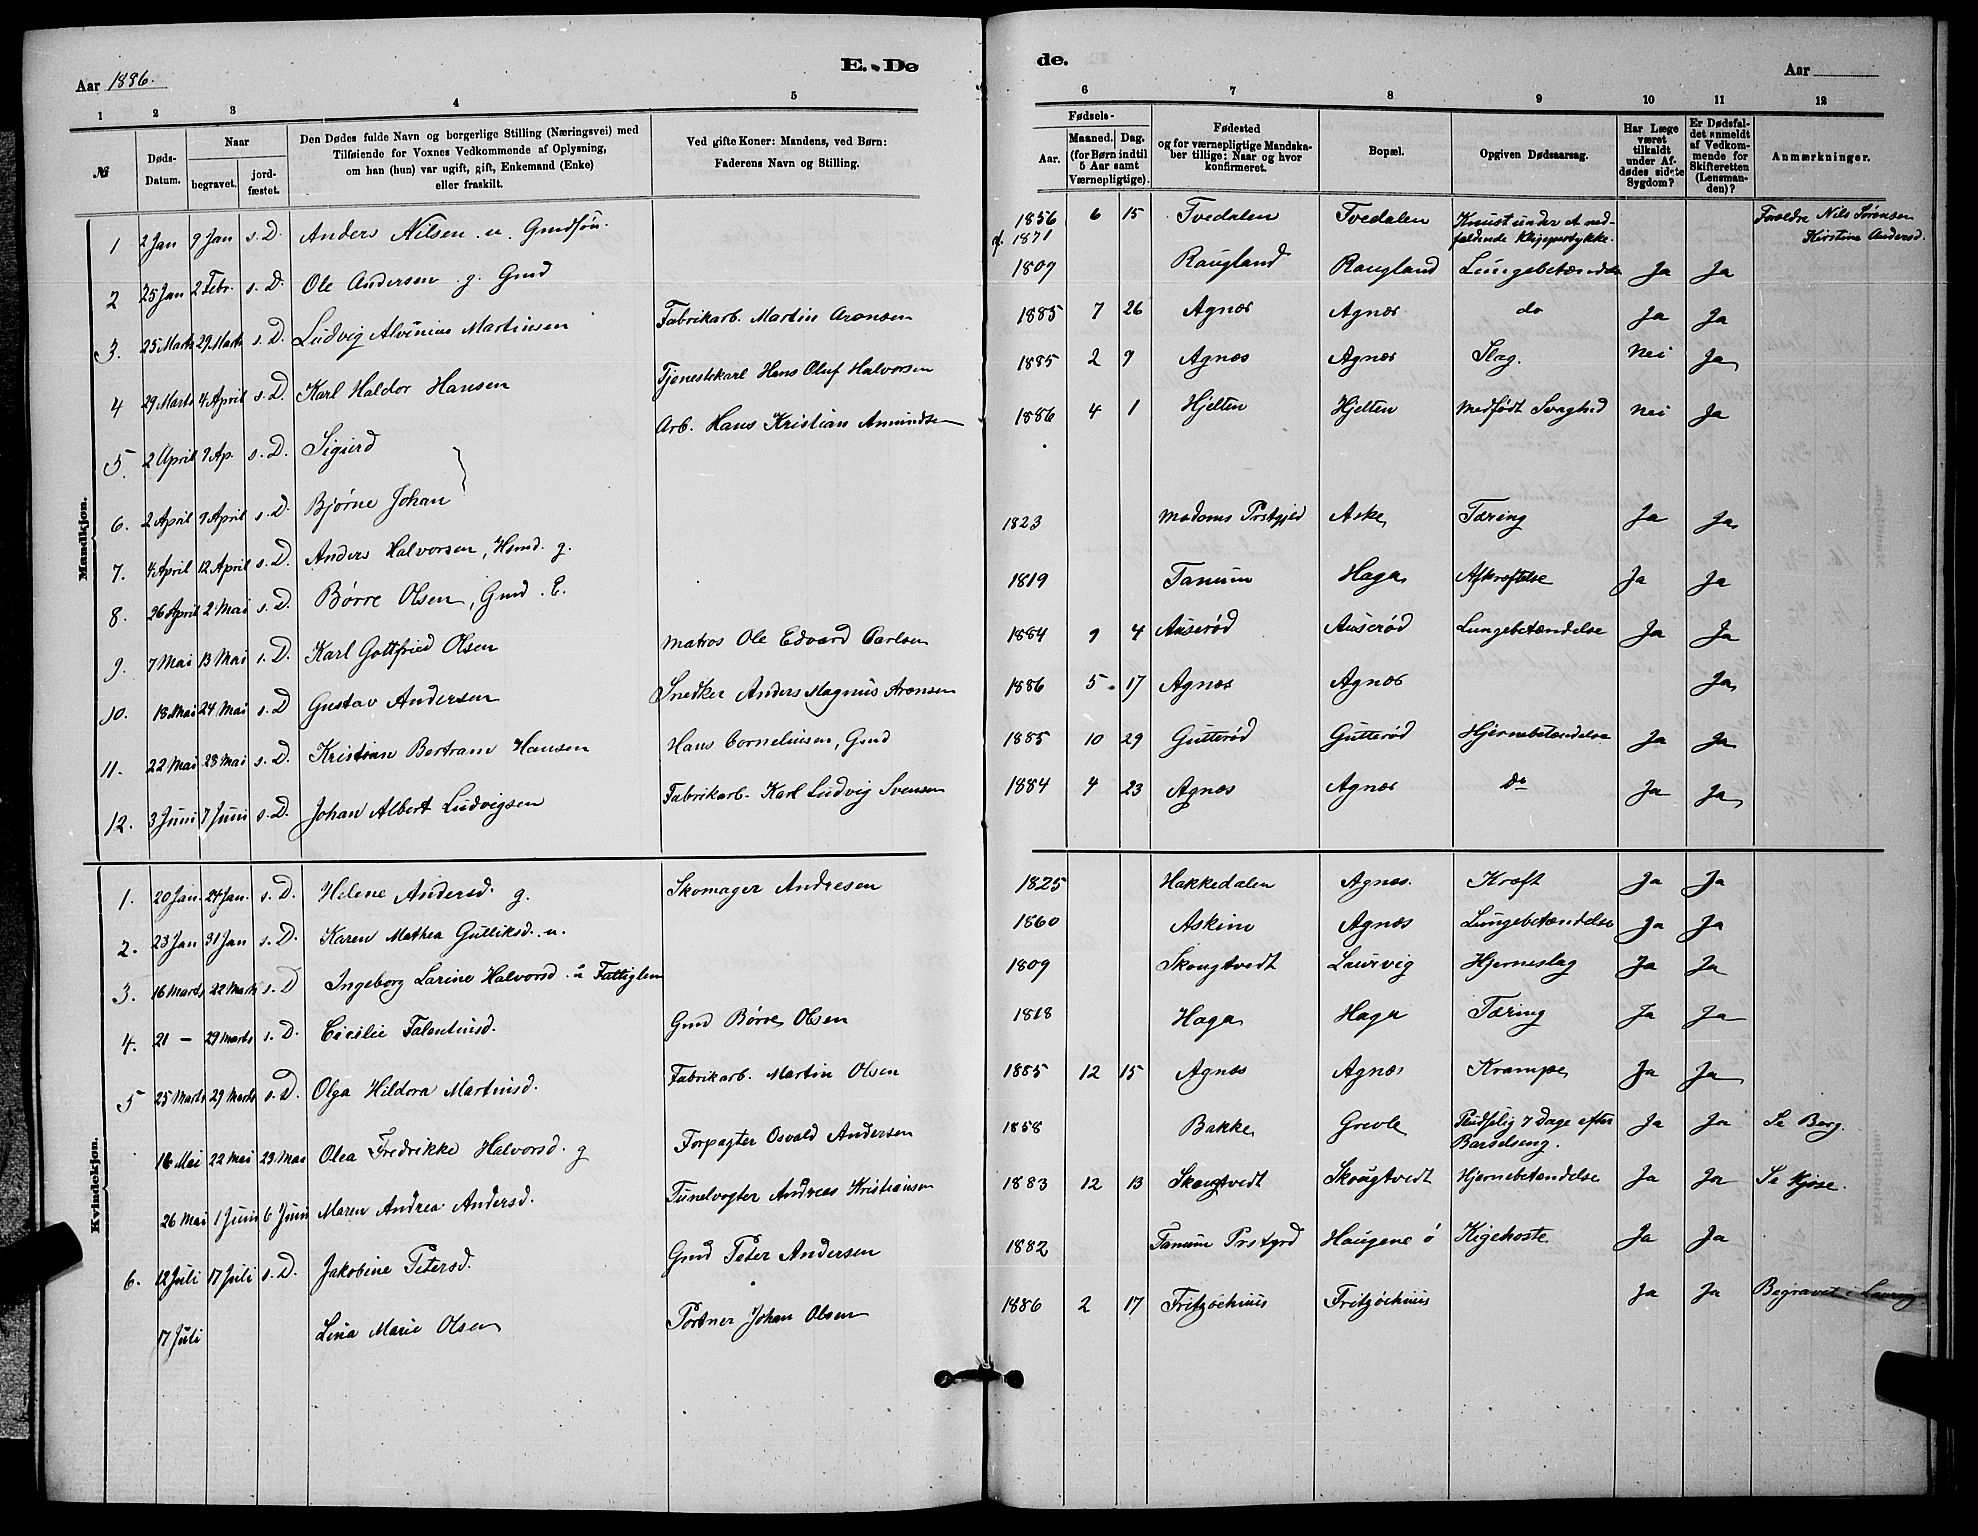 Aar 1886.
E. Dø
de.
Aar
1 2 3 4 5 6 7 8 9 10 11 12
№
Døds-Datum.
Naar
begravet.
jordfæstet.
Den Dødes fulde Navn og borgerlige Stilling (Næringsvei) med
Tilføiende for Voxnes Vedkommende af Oplysning,
om han (hun) var ugift, gift, Enkemand (Enke)
eller fraskilt.
Ved gifte Koner: Mandens, ved Børn:
Faderens Navn og Stilling.
Fødsels-
Aar.
Maaned. Dag.
(for Børn indtil
5 Aar samt
Værnepligtige).
Fødested
og for værnepligtige Mandska-
ber tillige: Naar og hvor
konfirmeret.
Bopæl.
Opgiven Dødsaarsag.
Har Læge
været
tilkaldt
under Af-
dødes sidste
Sygdom?
Er Dødsfal-
det anmeldt
af Vedkom-
mende for
Skifteretten
(Lensman-
den)?
Anmærkninger.
Mandkjøn.
1 2 Jan 9 Jan s. D. Anders Nilsen u. Gmdsøn. 1856 6 15 Tvedalen Tvedalen Knust under et ned-
faldende Klippestykke. Forældre Nils Sørensen
Kirstine Andersd.
1871
2 25 Jan 2 Febr. s. D. Ole Andersen g. Gmd 1809 Raugland Raugland Lungebetændelse Ja Ja
3. 25 Marts 29 Marts s. D. Ludvig Alvinius Martinsen Fabrikarb. Martin Aronsen 1885 7 26 Agnæs Agnæs do Ja Ja
4 29 Marts 4 April s. D. Karl Haldor Hansen Tjenestekarl Hans Oluf Halvorsen 1885 2 9 Agnæs Agnæs Slag. Nei Ja
5. 2 April 9 Ap. s. D. Sigurd Arb. Hans Kristian Amundsen 1886 4 1 Hjelten Hjelten Medfødt Svaghed Nei Ja
6. 2 April 9 April s. D. Bjørne Johan
7. 4 April 12 April s. D. Anders Halvorsen, Hsmd. g. 1823 Aske Tæring Ja Ja
8. 26 April 2 Mai s. D. Børre Olsen, Gmd. E. 1819 Tanum Haga Afkræftelse Ja Ja
9. 7 Mai 13 Mai s. D. Karl Gottfried Olsen Matros Ole Edvard Carlsen 1884 9 4 Auserød Auserød Lungebetændelse Ja Ja
10. 18 Mai 24 Mai s. D Gustav Andersen Snedker Anders Magnus Aronsen 1886 5 17 Agnæs Agnæs Ja
11. 22 Mai 28 Mai s. D. Kristian Bertram Hansen Hans Corneliusen, Gmd 1885 10 29 Gutterød Gutterød Hjernebetændelse Ja Ja
12. 3 Juni 7 Juni s. D. Johan Albert Ludvigsen Fabrikarb. Karl Ludvig Svensen 1884 4 23 Agnæs Agnæs Do Ja Ja
Kvindekjøn.
1. 20 Jan. 24 Jan. s. D. Helene Andersd. g. Skomager Andresen 1825 Hakkedalen Agnæs. Kræft Ja Ja
2. 23 Jan 31 Jan s. D. Karen Mathea Gulliksd. u. 1860 Askim Agnæs Lungebetændelse Ja Ja
3. 16 Marts 22 Marts s. D Ingeborg Larine Halvorsd. u Fattiglem 1809 Skougtvedt Laurvig Hjerneslag Ja Ja
4. 21 — 29 Marts s. D. Cicilie Falentinsd. Gmd Børre Olsen 1818 Haga Haga Tæring Ja Ja
5 25 Marts 29 Marts s. D. Olga Hildora Martinsd. Fabrikarb. Martin Olsen 1885 12 15 Agnæs Agnæs Krampe Ja Ja
16 Mai 22 Mai 23 Mai Olea Fredrikke Halvorsd. g Forpagter Osvald Andersen 1858 Bakke Grevle Pludselig 7 Dage efter
Barselseng. Ja Ja Se Berg.
26 Mai 1 Juni 6 Juni Maren Andrea Andersd. Tunelvogter Andreas Kristiansen 1883 12 13 Skougtvedt Skougtvedt Hjernebetændelse Ja Ja Se Kjose.
6. 12 Juli 17 Juli s. D. Jakobine Petersd. Gmd Peter Andersen 1882 Tanum Prstgrd Haugene ø Kighoste Ja Ja
17 Juli Lina Marie Olsen Portner Johan Olsen 1886 2 17 Fritzøehuus Fritzøehuus Ja Ja Begravet i Laurvig